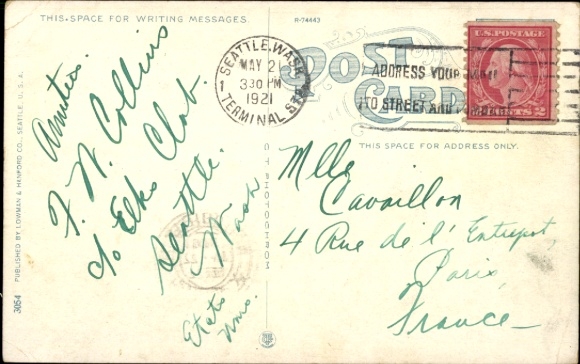 THIS SPACE FOR WRITING MESSAGES.
R-74443
POST CARD
SEATTLE, WASH.
MAY 2
3 30 PM
1921
TERMINAL STA.
ADDRESS YOUR MAIL
TO STREET AND NUMBER
U.S. POSTAGE
CENTS 2
THIS SPACE FOR ADDRESS ONLY.
Amities.
F. W. Collins
c/o Elks Club.
Seattle.
Wash
Etats
Unis.
Mlle
Cavaillon
4 Rue de l'Entrepot,
Paris,
France
PUBLISHED BY LOWMAN & HANFORD CO., SEATTLE, U.S.A.
3054